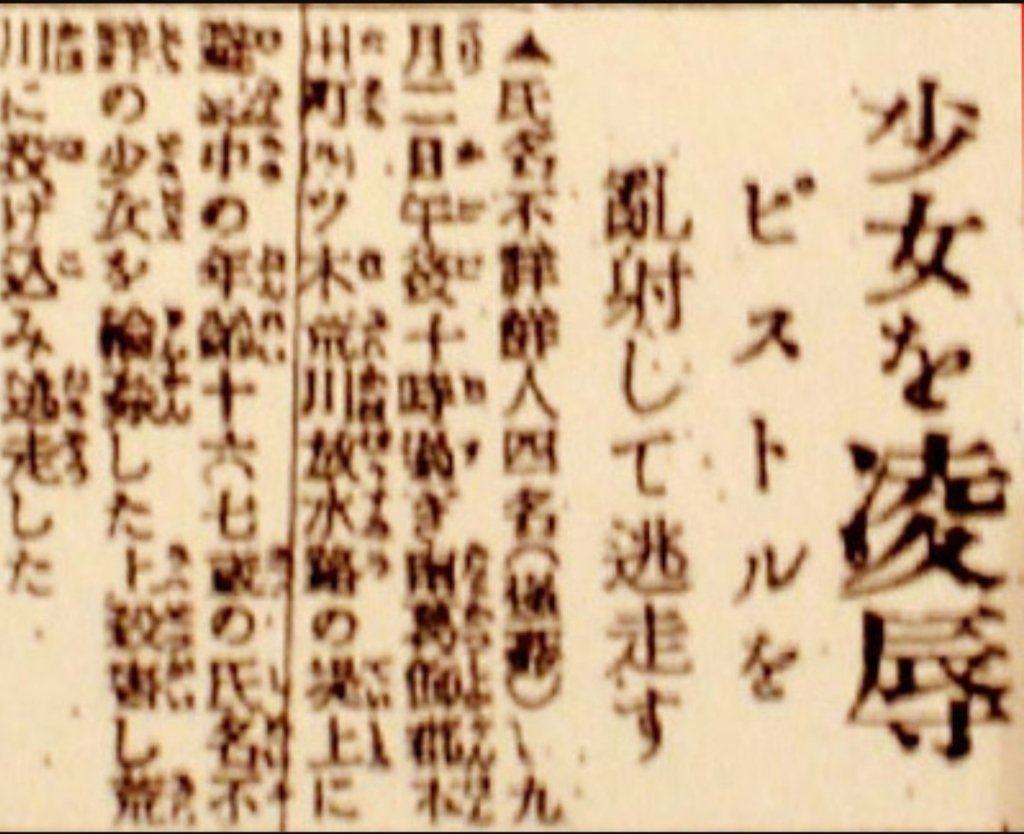 少女を凌辱
ピストルを
乱射して逃走す
▲氏名不詳鮮人四名(逃走)は九
月二日午後十時過ぎ南葛飾郡本
田町四ツ木荒川放水路の堤上に
避難中の年齢十六七歳の氏名不
詳の少女を輪姦した上殺害し荒
川に投げ込み逃走した